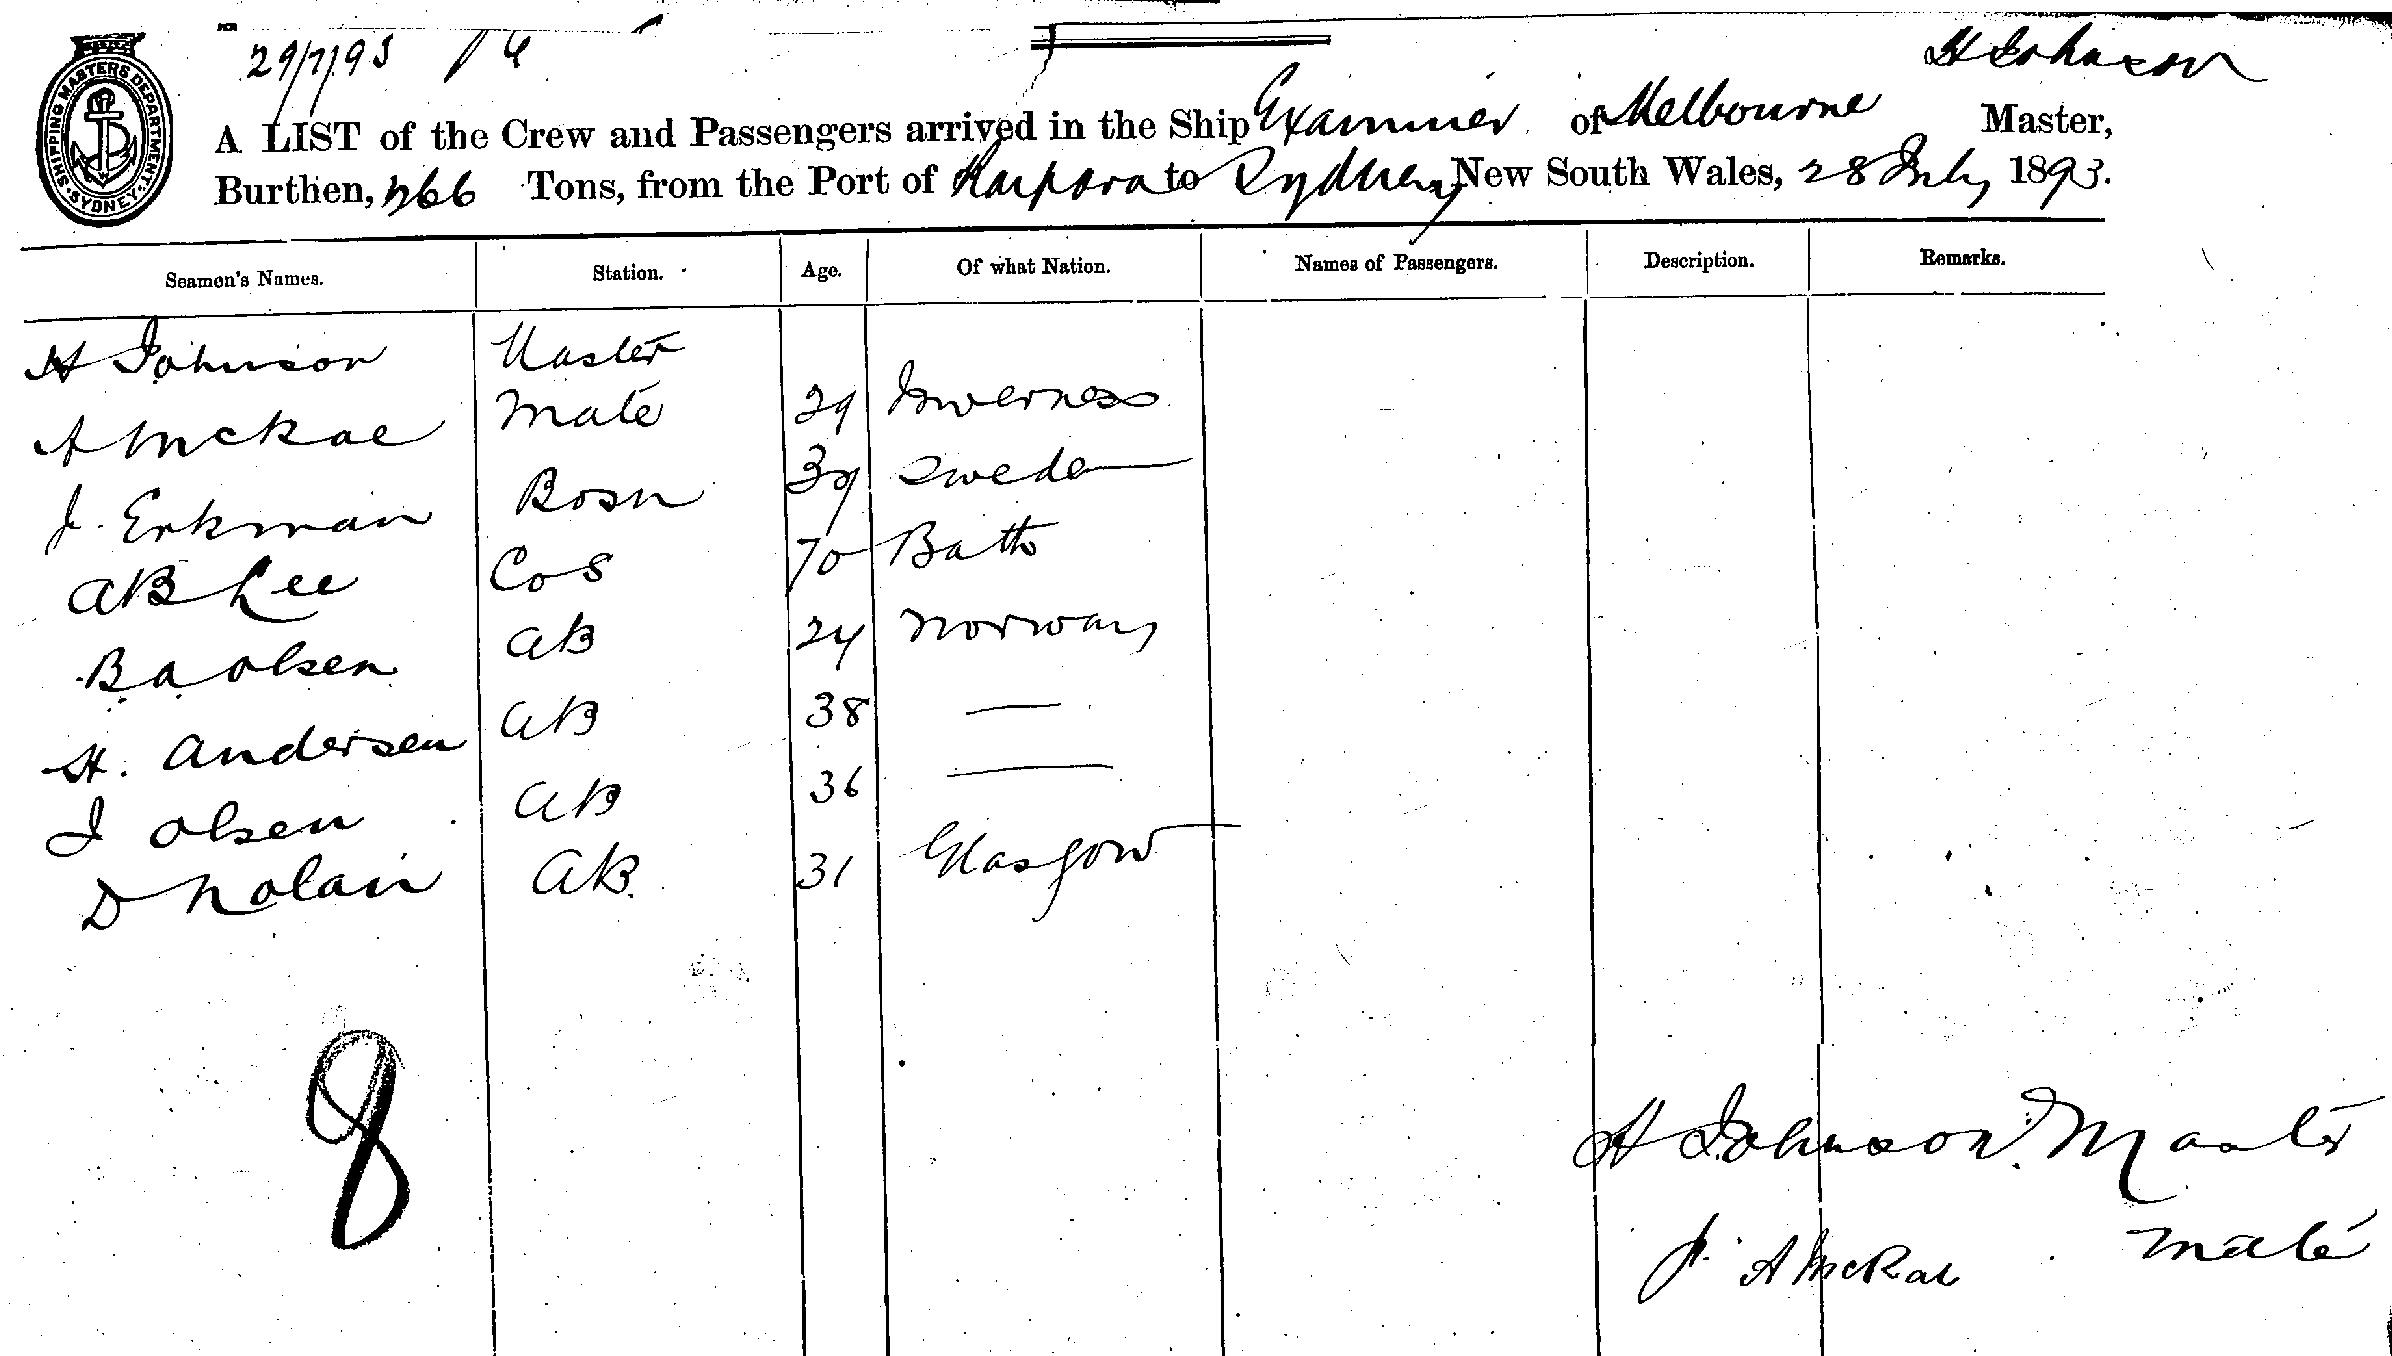 29/7/93
H Johnson
SHIPPING MASTERS DEPARTMENT. SYDNEY.
A LIST of the Crew and Passengers arrived in the Ship Examiner of Melbourne Master,
Burthen, 266 Tons, from the Port of Kaipara to Sydney New South Wales, 28 July 1893.
Seamen's Names. Station. Age. Of what Nation. Names of Passengers. Description. Remarks.
H Johnson Master
A McRae Mate 29 Inverness
J. Erkman Bosn 39 Sweden
AB Lee CoS 70 Bath
B A Olsen AB 24 Norway
H. Andersen AB 38 —
J Olsen AB 36 —
D Nolan AB 31 Glasgow
8
H Johnson Master
A McRae Mate